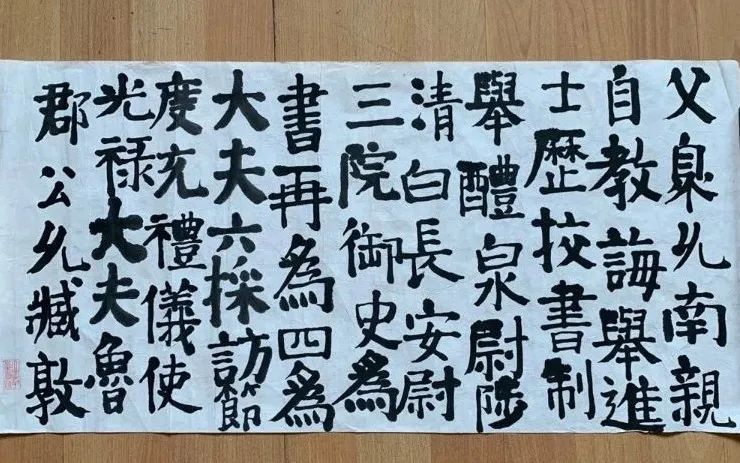 父臮允南親
自教誨舉進
士歷挍書制
舉醴泉尉陟
清白長安尉
三院御史為
書再為四為
大夫六採訪節
度充禮儀使
光祿大夫魯
郡公允臧敦